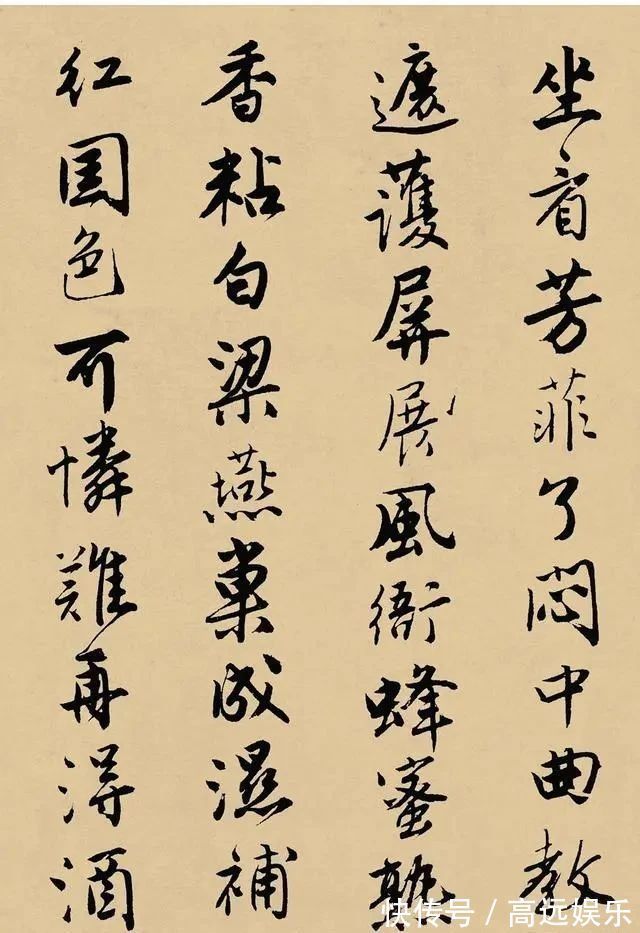 坐看芳菲了悶中曲教
遮護屏展風衙蜂蜜熟
香粘白梁燕巢成濕補
紅國色可憐難再得酒
快传号 / 高远娱乐